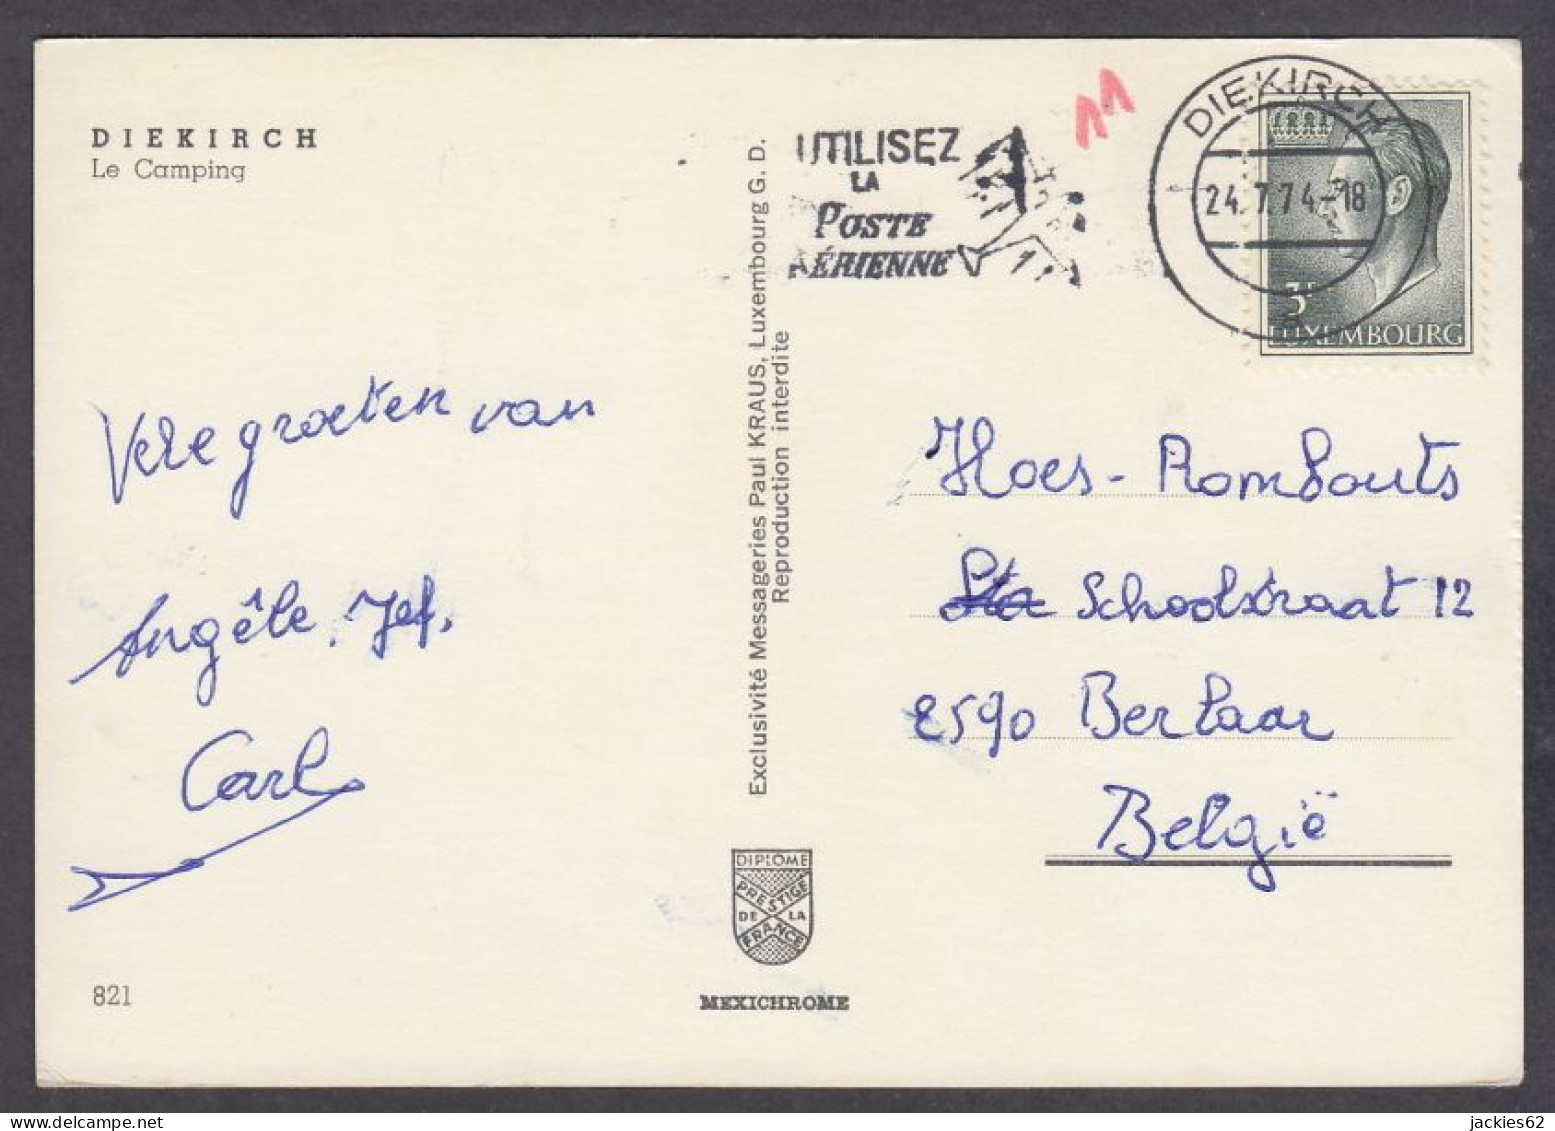 DIEKIRCH
Le Camping
Vele groeten van
Angêle, Jef,
Carl
821
Exclusivité Messageries Paul KRAUS, Luxembourg G. D.
Reproduction interdite
DIPLOME
PRESTIGE
DE LA
FRANCE
MEXICHROME
UTILISEZ
LA
POSTE
AÉRIENNE
11
DIEKIRCH
24.7.74-18
3F
LUXEMBOURG
Hoes-Rombouts
Schoolstraat 12
2590 Berlaar
België
jackies62